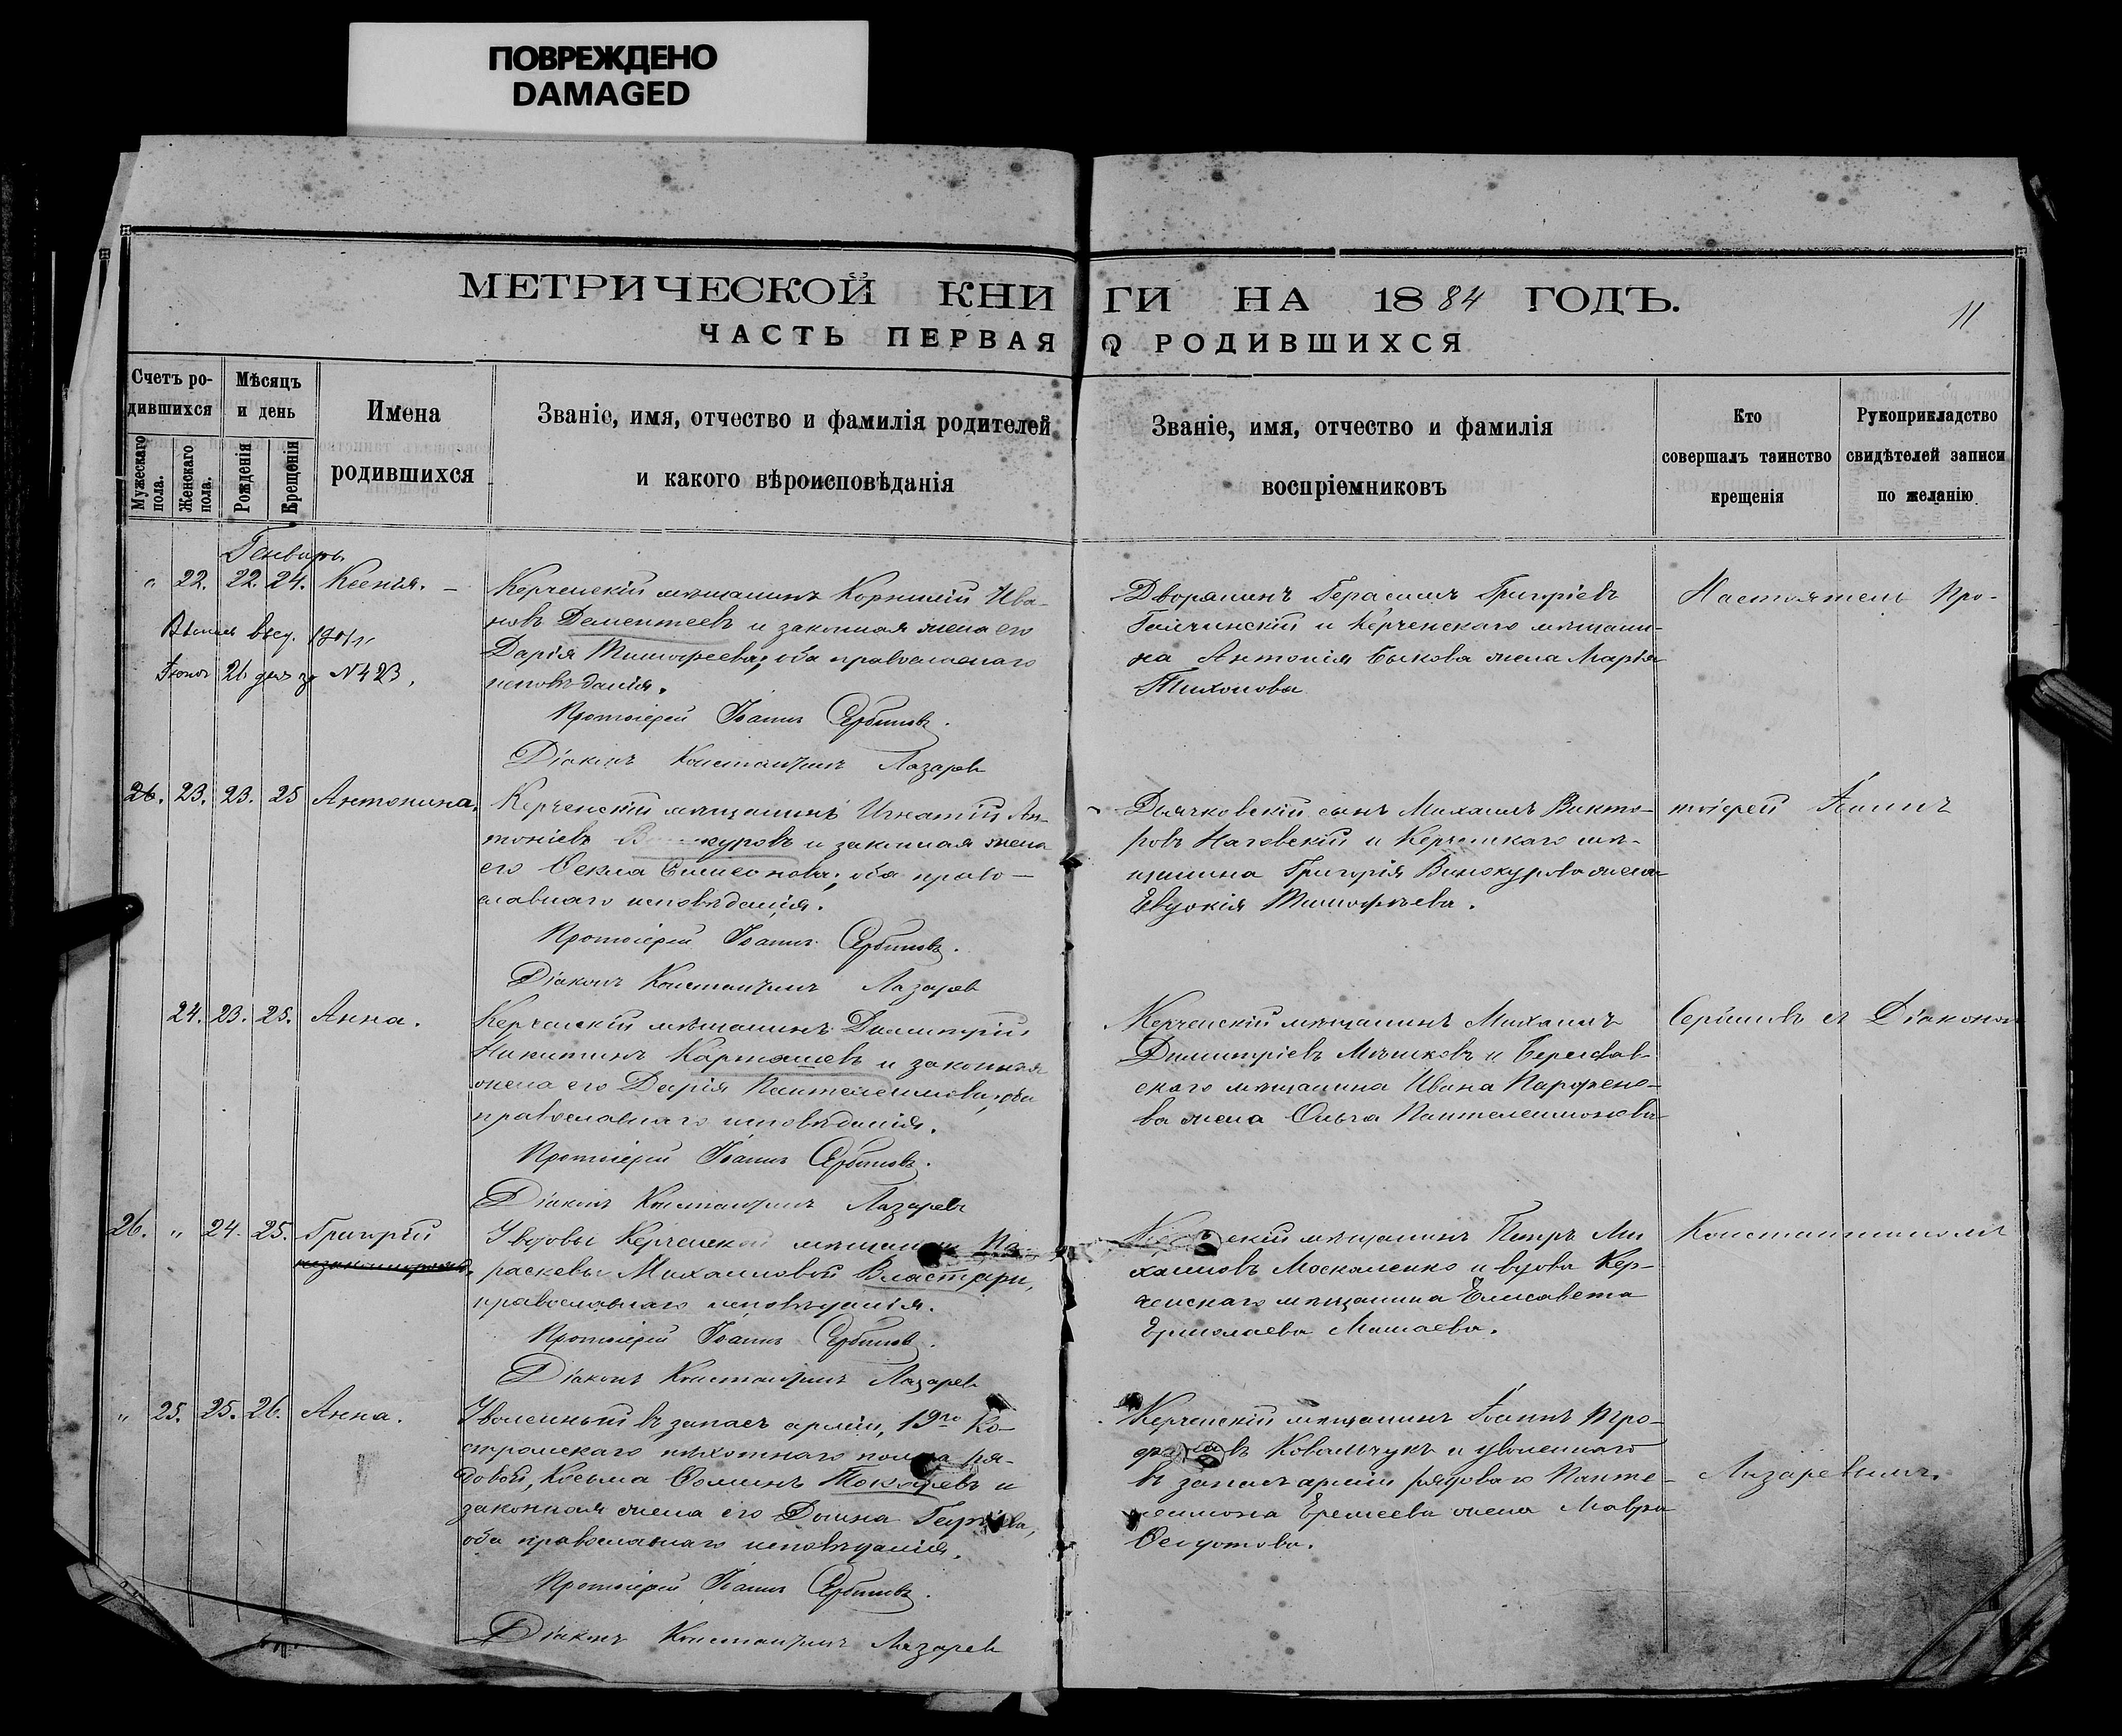 ПОВРЕЖДЕНО
DAMAGED
МЕТРИЧЕСКОЙ КНИГИ НА 1884 ГОДЪ.
11
ЧАСТЬ ПЕРВАЯ О РОДИВШИХСЯ
Счетъ родившихся
Мужескаго пола.
Женскаго пола.
Мѣсяцъ и день
Рожденія
Крещенія
Имена
родившихся
Званіе, имя, отчество и фамилія родителей
и какого вѣроисповѣданія
Званіе, имя, отчество и фамилія
воспріемниковъ
Кто
совершалъ таинство
крещенія
Рукоприкладство
свидѣтелей записи
по желанію
Генварь
" 22. 22. 24. Ксенія. —
26 № 423.
Керченскій мѣщанинъ Корнилій Ива-
новъ Дементеевъ и законная жена его
Дарія Тимофеева; оба православнаго
исповѣданія.
Протоіерей Іоаннъ Сербиновъ.
Діаконъ Константинъ Лазарев
Дворянинъ Герасимъ Григоріевъ
и Керченскаго мѣщани-
на Антонія Быкова жена Марія
Тихонова
Настоятель Про-
26. 23. 23. 25 Антонина.
Керченскій мѣщанинъ Игнатій Ан-
тоніевъ В куровъ и законная жена
его Ѳекла Симеонова; оба право-
славнаго исповѣданія.
Протоіерей Іоаннъ Сербиновъ.
Діаконъ Константинъ Лазарев
Дьячковскій сынъ Михаилъ Викто-
ровъ Наговскій и Керченскаго мѣ-
щанина Григорія Винокурова жена
Евдокія Тимофѣева.
тоіерей Іоаннъ
24. 23. 25. Анна.
Керченскій мѣщанинъ Димитрій
Никитинъ Карташевъ и законная
жена его Дарія Пантелеимонова, оба
православнаго исповѣданія.
Протоіерей Іоаннъ Сербиновъ.
Діаконъ Константинъ Лазаревъ
Керченскій мѣщанинъ Михаилъ
Димитріевъ Мѣшковъ и Берислав-
скаго мѣщанина Ивана Парфено-
ва жена Ольга Пантелеимонова
Сербиновъ съ Діакономъ
26. " 24. 25. Григорій
У вдовы Керченской мѣщанки Па-
раскевы Михаиловой Властари,
православнаго исповѣданія.
Протоіерей Іоаннъ Сербинов.
Діаконъ Константинъ Лазарев
скій мѣщанинъ Петръ Ми-
хаиловъ Москаленко и вдова Кер-
ченскаго мѣщанина Елисавета
Ермолаева Мамаева.
Константиномъ
" 25. 25. 26. Анна.
Уволенный въ запасъ арміи, 19го Ко-
стромскаго пѣхотнаго полка ря-
довой, Косьма Ѳоминъ Токаревъ и
законная жена его Домна Георгіева,
оба православнаго исповѣданія.
Протоіерей Іоаннъ Сербиновъ.
Діаконъ Константинъ Лазарев
Керченскій мѣщанинъ Іоаннъ Тро-
въ Ковальчукъ и уволеннаго
въ запасъ арміи рядоваго Панте-
леимона Еремеева жена Мавра
Ѳедотова.
Лазаревымъ.